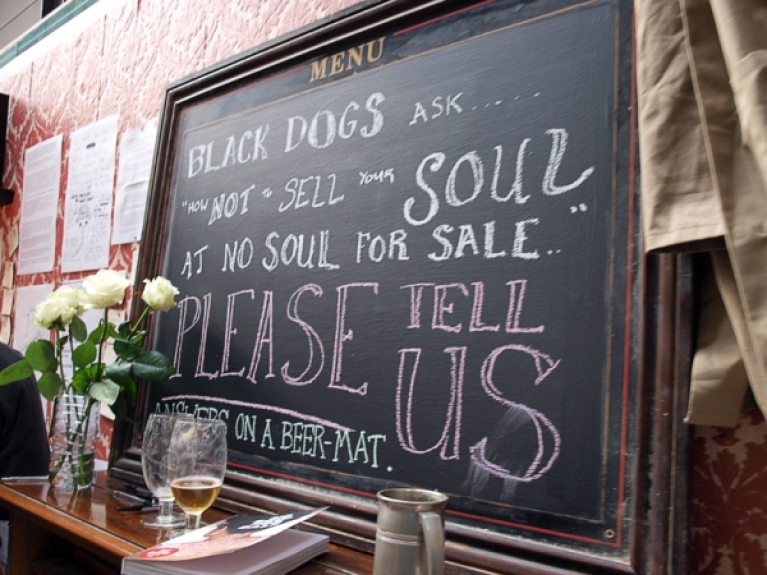 MENU
BLACK DOGS ASK......
"HOW NOT TO SELL YOUR SOUL
AT NO SOUL FOR SALE.."
PLEASE TELL US
ANSWERS ON A BEER-MAT.